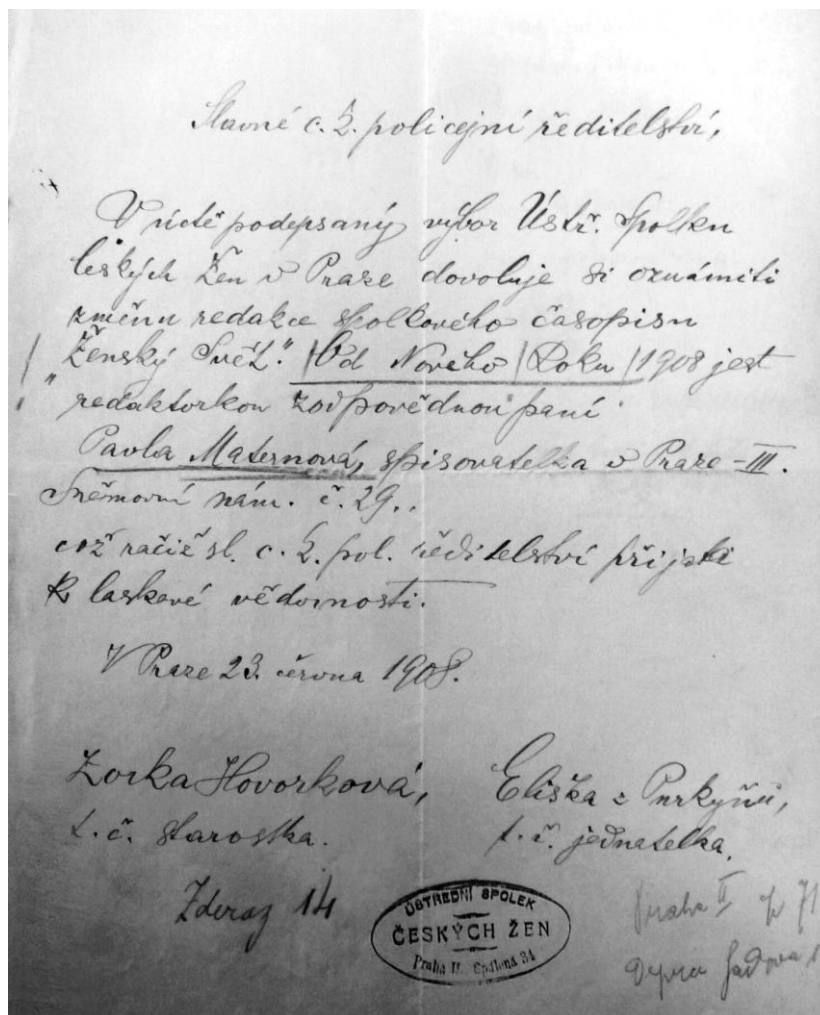 Slavné c. k. policejní ředitelství,
V úctě podepsaný výbor Ústř. Spolku
českých Žen v Praze dovoluje si oznámiti
změnu redakce spolkového časopisu
„Ženský Svět." Od Nového Roku 1908 jest
redaktorkou zodpovědnou paní
Pavla Maternová, spisovatelka v Praze - III.
Sněmovní nám. č. 29..
což račiž sl. c. k. pol. ředitelství přijati
k laskavé vědomosti.
V Praze 23. června 1908.
Zorka Hovorková,
t. č. starostka.
Eliška z Purkyňů,
t. č. jednatelka.
Zderaz 14
ÚSTŘEDNÍ SPOLEK
ČESKÝCH ŽEN
Praha II. Spálená 34
Praha II